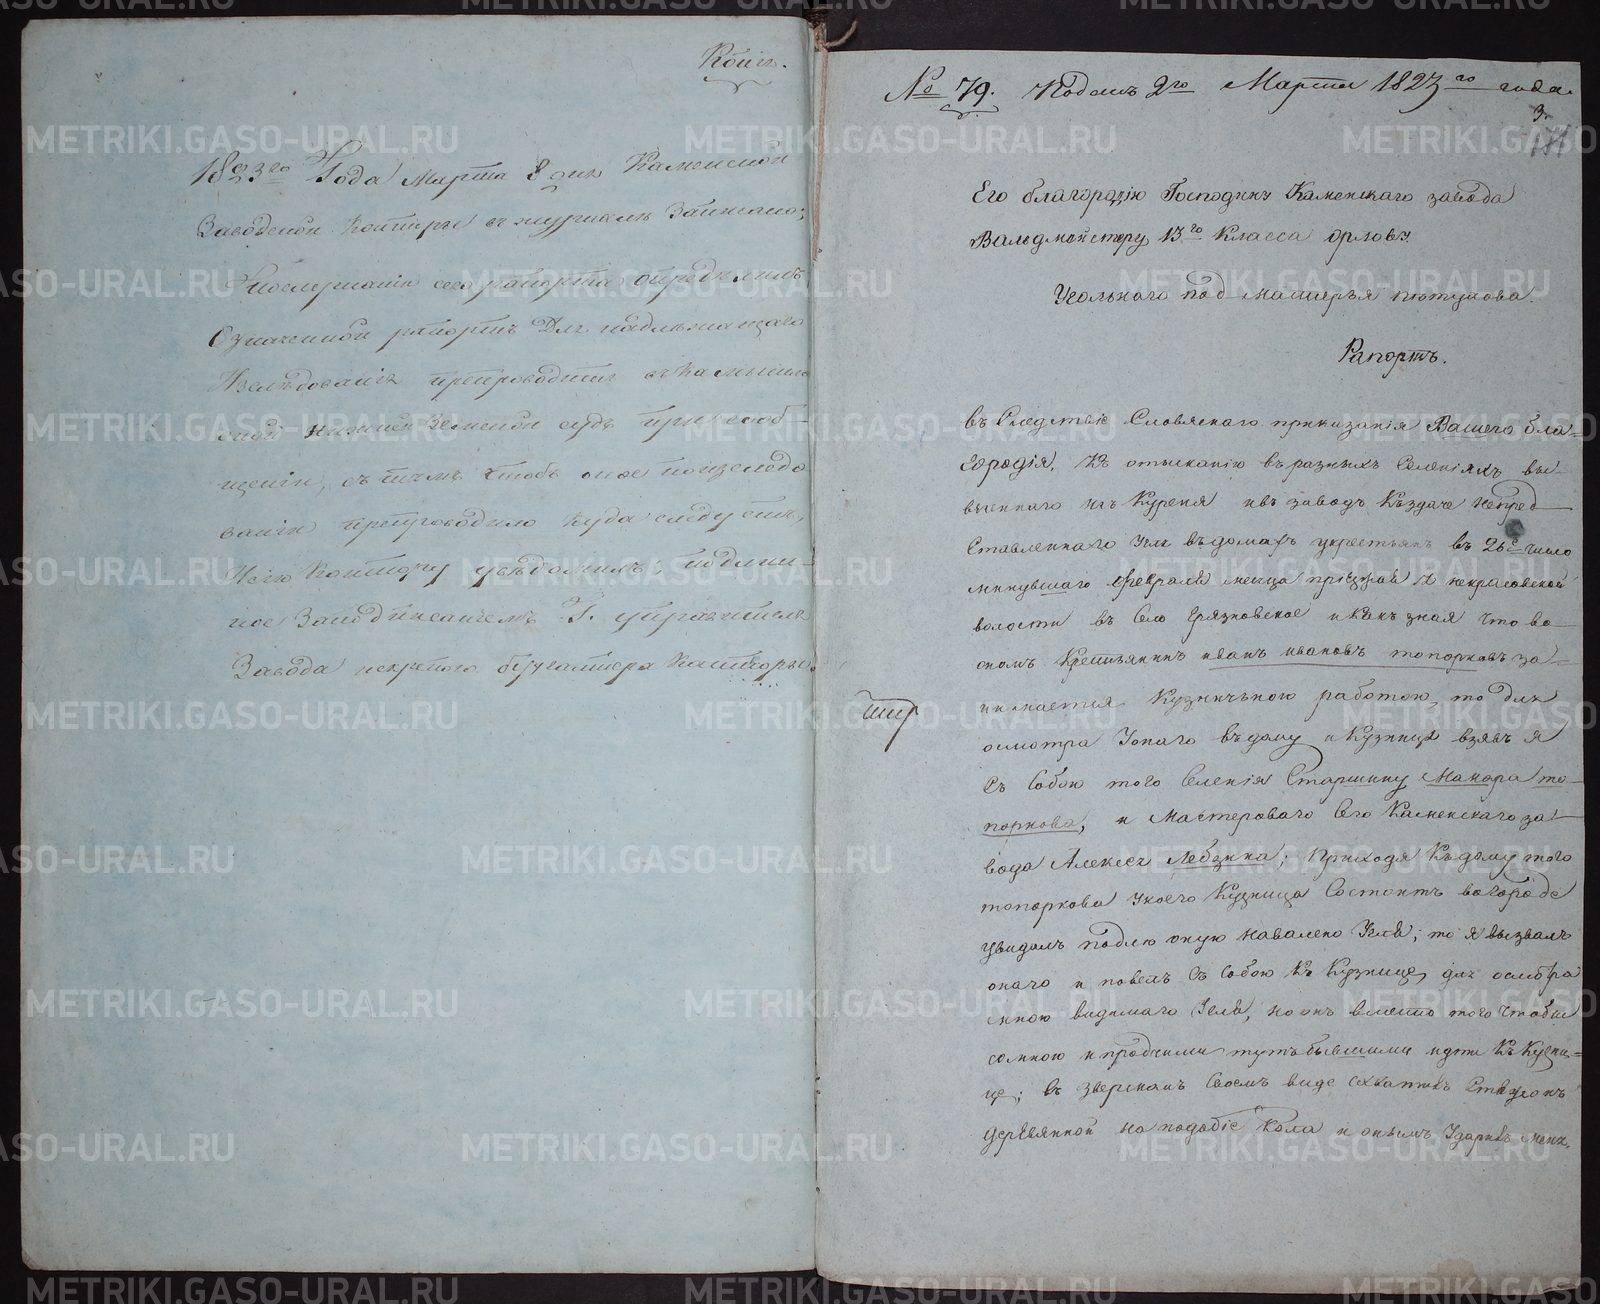 Копія.
1823го Года Марта 8 дня Каменской
Заводской Конторы въ журналѣ записано:
По слушаніи сего рапорта опредѣлили
Означенной рапортъ Для надлежащаго
Изслѣдованія препроводить въ Камышлов
ской нижней Земской судъ при сооб-
щеніи, съ тѣмъ чтобъ оное по изследо
ваніи препроводило куда следуетъ,
И сію Контору увѣдомилъ; подлин-
ное За подписаніемъ Г. управителя
Завода и скрепою бухгалтера Конторы.
№ 79. Поданъ 2го Марта 1823го года.
3
Его благородію Господину Каменскаго завода
Вальдмейстеру 13го Класса Орлову.
Угольнаго под мастерья
Рапортъ.
въ Следствіе Словяснаго приказанія Вашего бла-
городія, Къ отысканію въ разныхъ Селеніяхъ вы-
везеннаго изъ Куреня и въ заводъ Къ здаче непред
ставленнаго Угля въ домахъ укрестьянъ въ 26е число
минувшаго февраля месяца пріезжая я некрасовской
волости въ Село Грязновское и какъ зная что во
ономъ Крестьянинъ иванъ ивановъ топорковъ за-
нимается Кузничъною работою, то для
осмотра Уонаго въ дому и Кузнице взявъ я
Съ Собою того Селенія Старшину Макара то-
поркова, и Мастероваго Сего Каменскаго за-
вода Алексея Лебзина; Приходя Къ дому того
топоркова Укоего Кузница Состоитъ вогороде
увидалъ подлѣ оную навалено Угля; то я вызвалъ
онаго и повелъ Съ Собою Къ Кузнице, для осмотра
мною видимаго Угля, но онъ вместо того Чтобы
со мною и протчими тутъ бывшими идти Къ Кузни-
це; въ зверскомъ Своемъ виде Схватилъ Стяжокъ
деревянной на подобіе Кола и онымъ Ударилъ меня